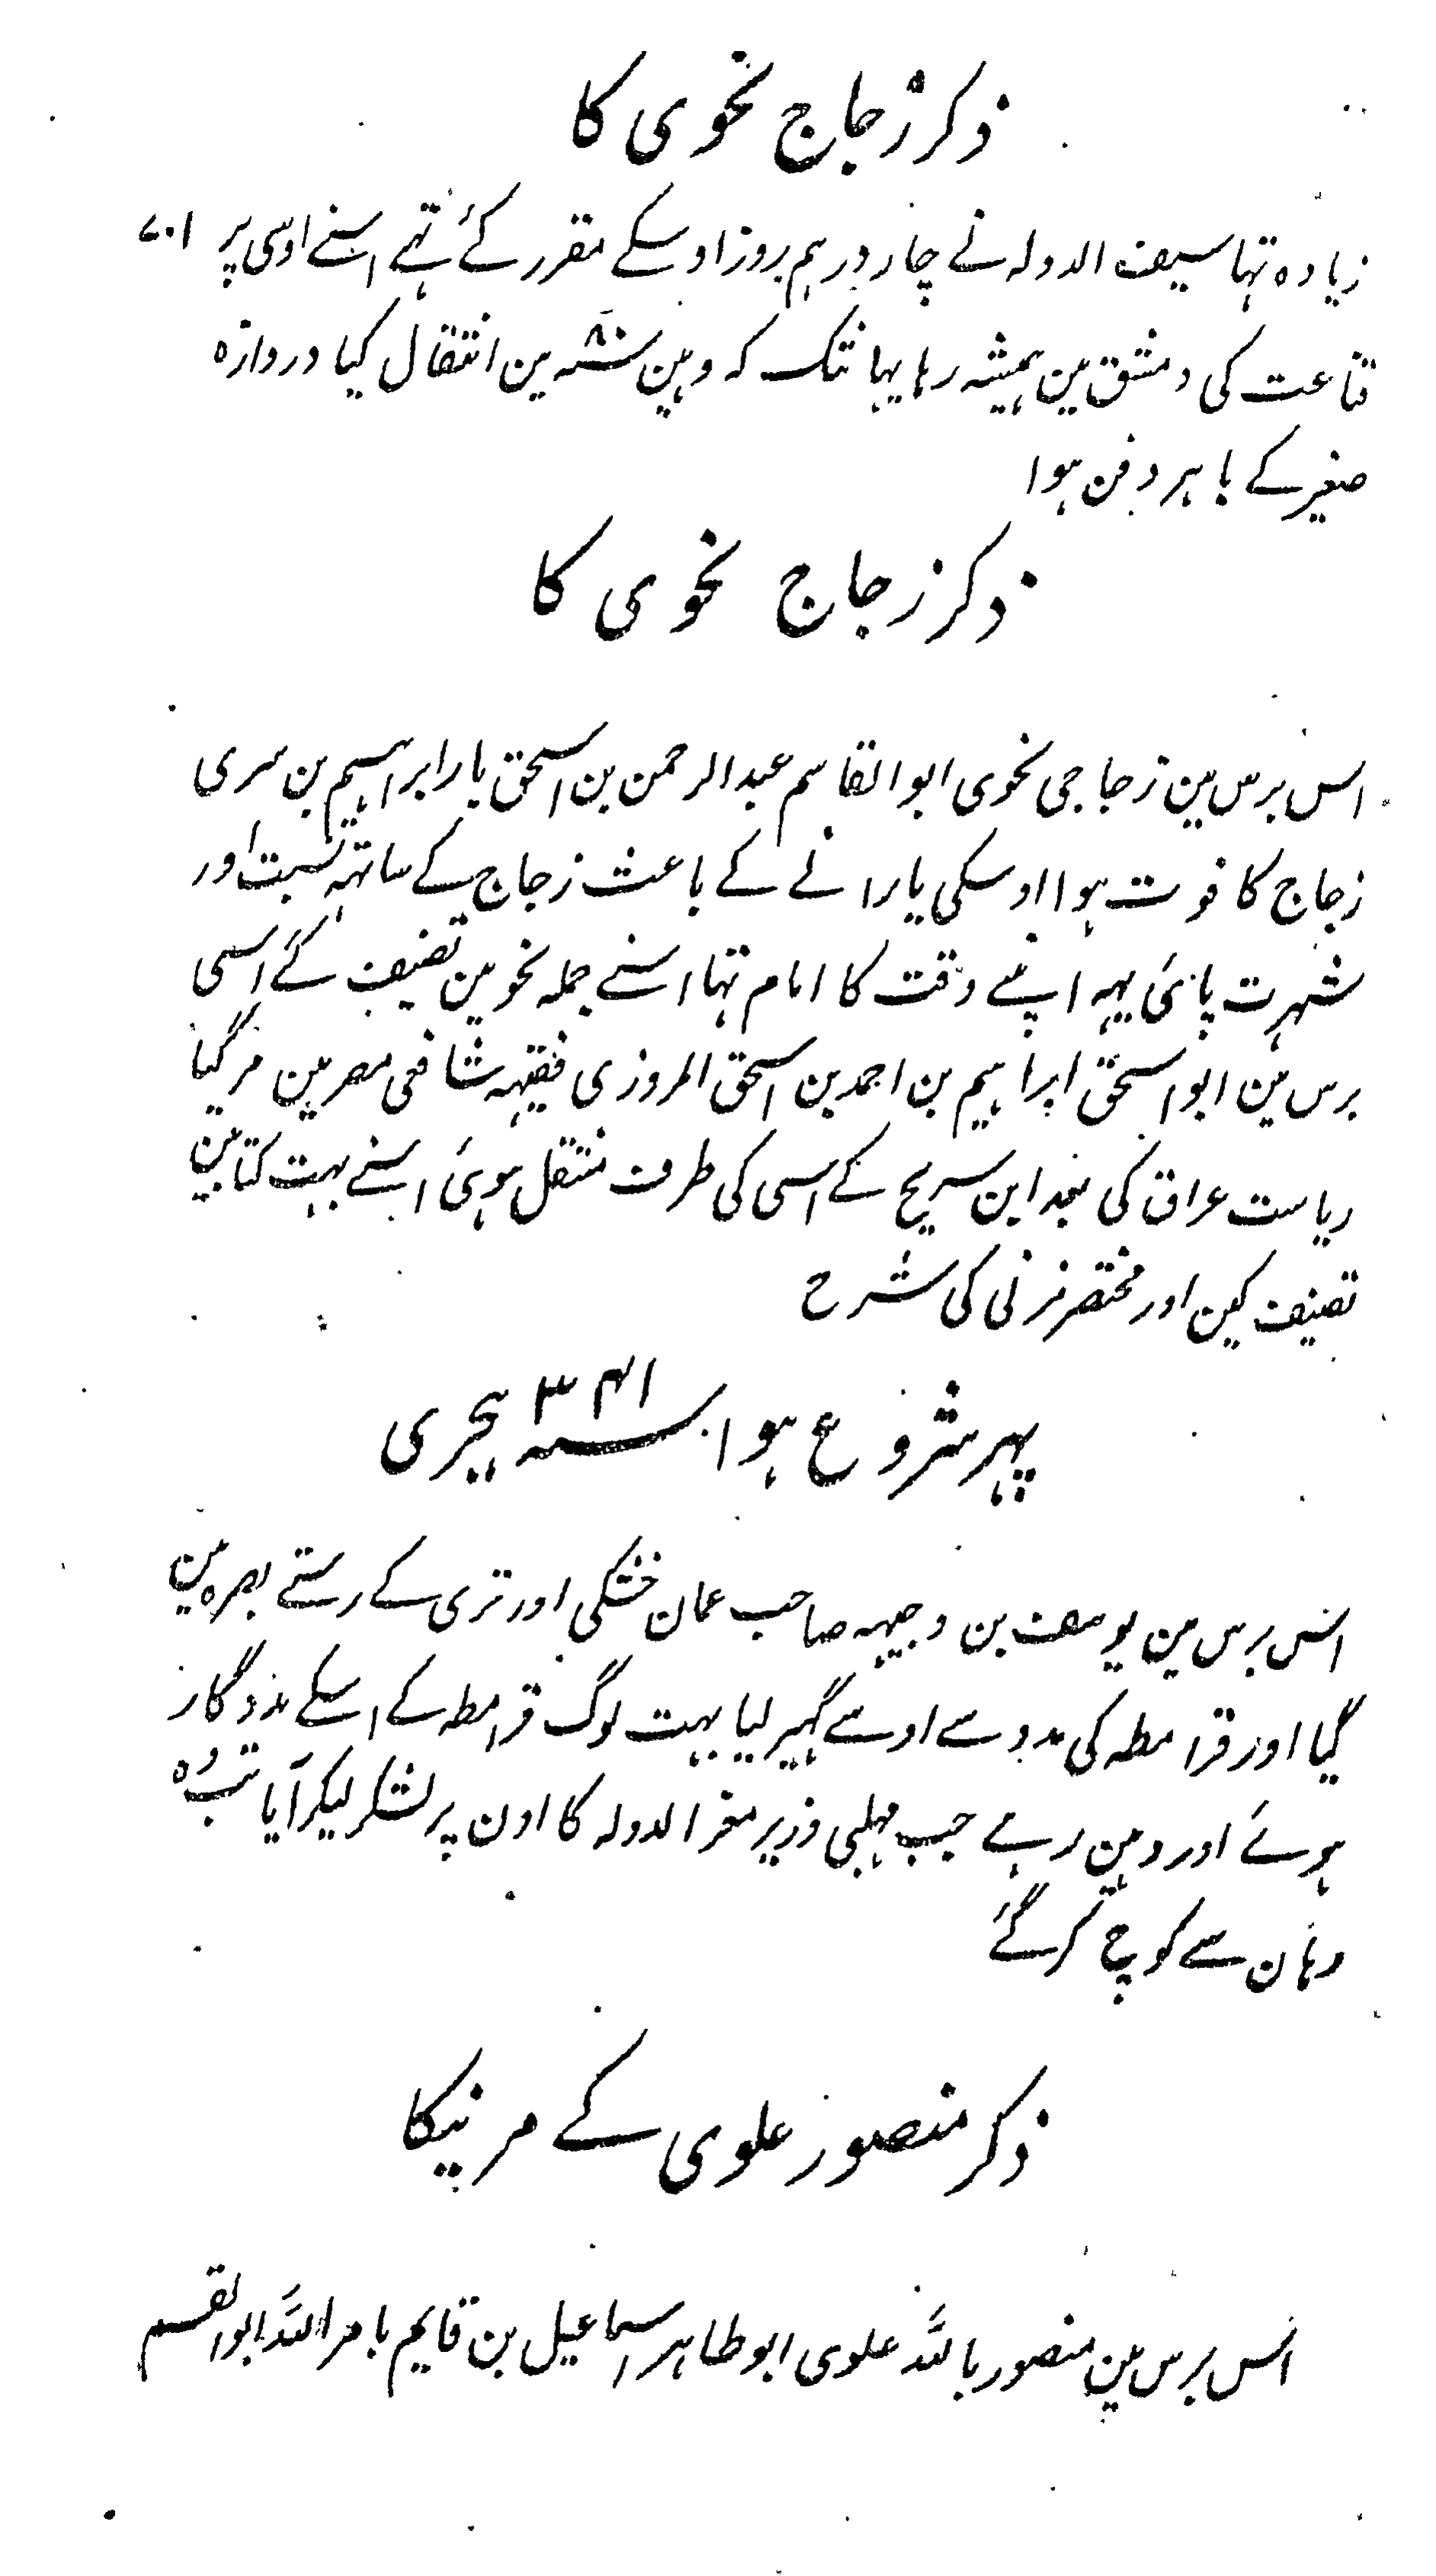 ذکر زجاج نحوی کا
زیادہ تہا سیف الدولہ نے چار درہم روز اوسکے مقرر کئے تہے اسنے اوسی پر ۷۰۱
قناعت کی دمشق مین ہمیشہ رہا یہانتک کہ وہین سنہ ۸۰ مین انتقال کیا دروازہ
صغیر کے باہر دفن ہوا
ذکر زجاج نحوی کا
اس برس مین زجاجی نحوی ابو القاسم عبد الرحمن بن اسحق یار ابراہیم بن سری
زجاج کا فوت ہوا اوسکی یارانے کے باعث زجاج کے ساتہہ نسبت اور
شہرت پائی یہہ اپنے وقت کا امام تہا اسنے جملہ نحو مین تصنیف کے اسی
برس مین ابو اسحق ابراہیم بن احمد بن اسحق المروزی فقیہہ شافعی مصر مین مر گیا
ریاست عراق کی بعد ابن سریح کے اسی کی طرف منتقل ہوئی اسنے بہت کتابین
تصنیف کین اور مختصر مزنی کی شرح
پہر شروع ہوا سنہ ۳۴۱ ہجری
اس برس مین یوسف بن وجیہہ صاحب عمان خشکی اور تری کے رستے بصرہ مین
گیا اور قرامطہ کی مدد سے اوسے گہیر لیا بہت لوگ قرامطہ کے اسکے مددگار
ہوئے اور وہین رہے جب مہلبی وزیر معز الدولہ کا اون پر لشکر لیکر آیا تب وہ
وہان سے کوچ کر گئے
ذکر منصور علوی کے مرنیکا
اس برس مین منصور باللہ علوی ابو طاہر اسماعیل بن قایم بامر اللہ ابو القسم